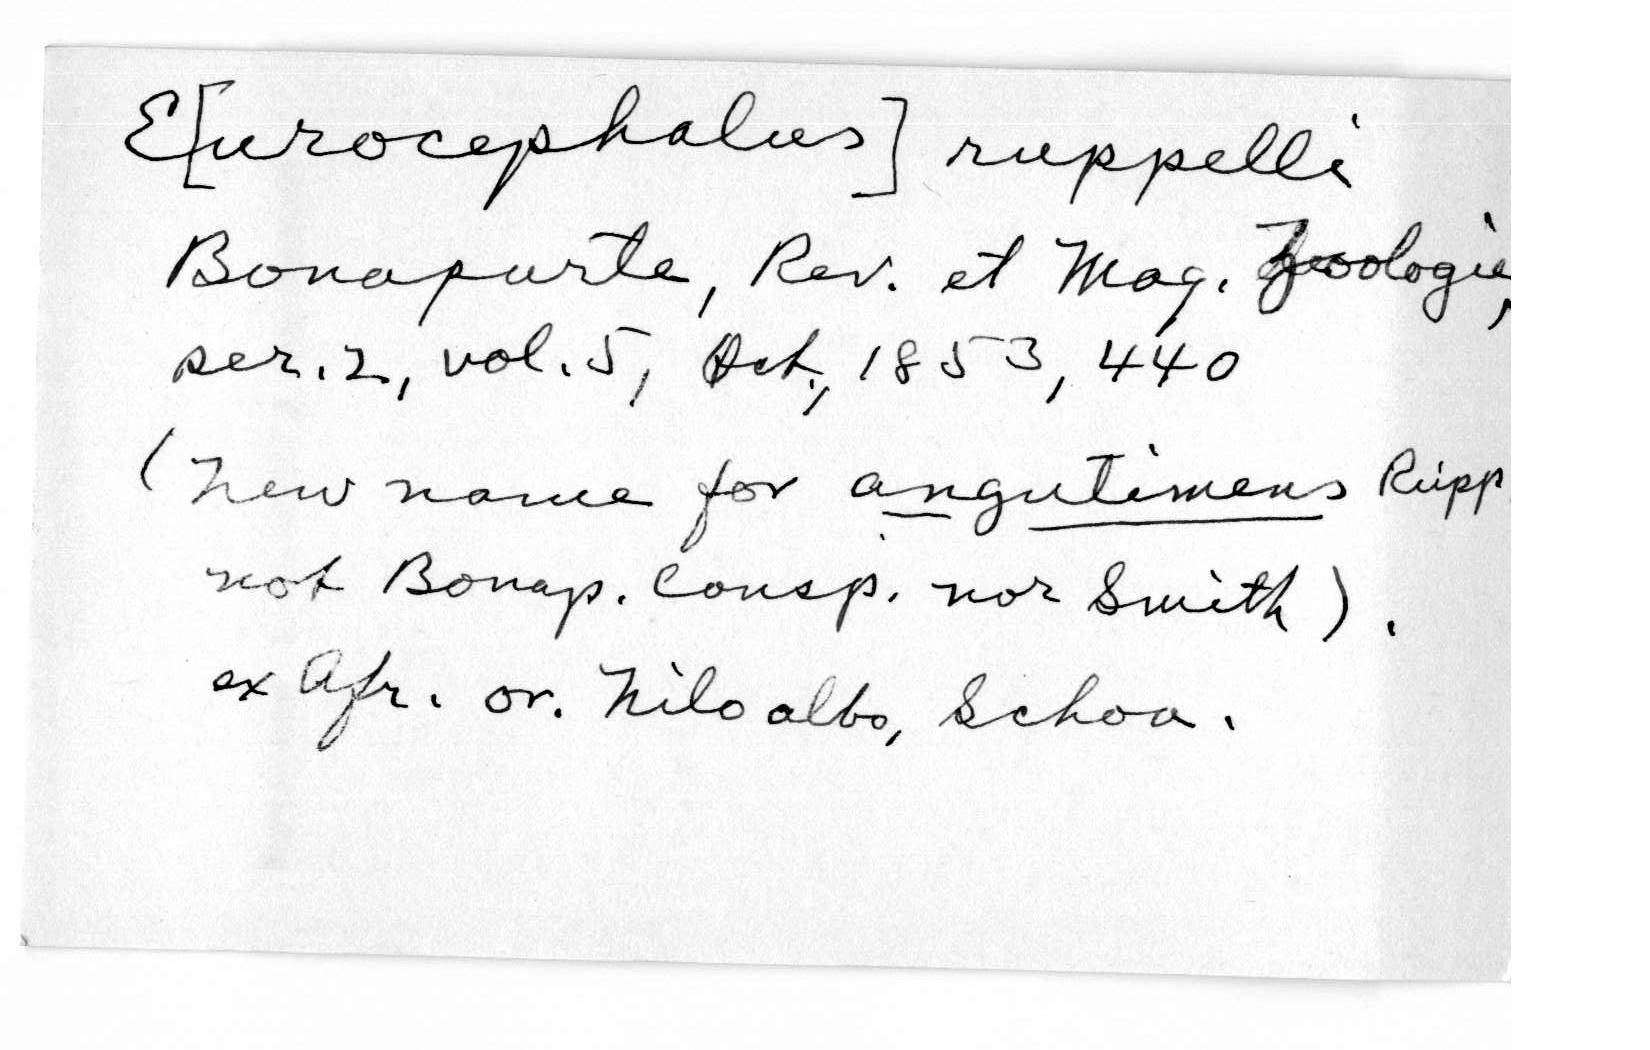 E[urocephalus] ruppelli
Bonaparte, Rev. et Mag. Zoologie,
ser. 2, vol. 5, Oct., 1853, 440
(New name for angutimens Rüpp
not Bonap. Consp. nor Smith).
ex Afr. or. Nilo albo, Schoa.